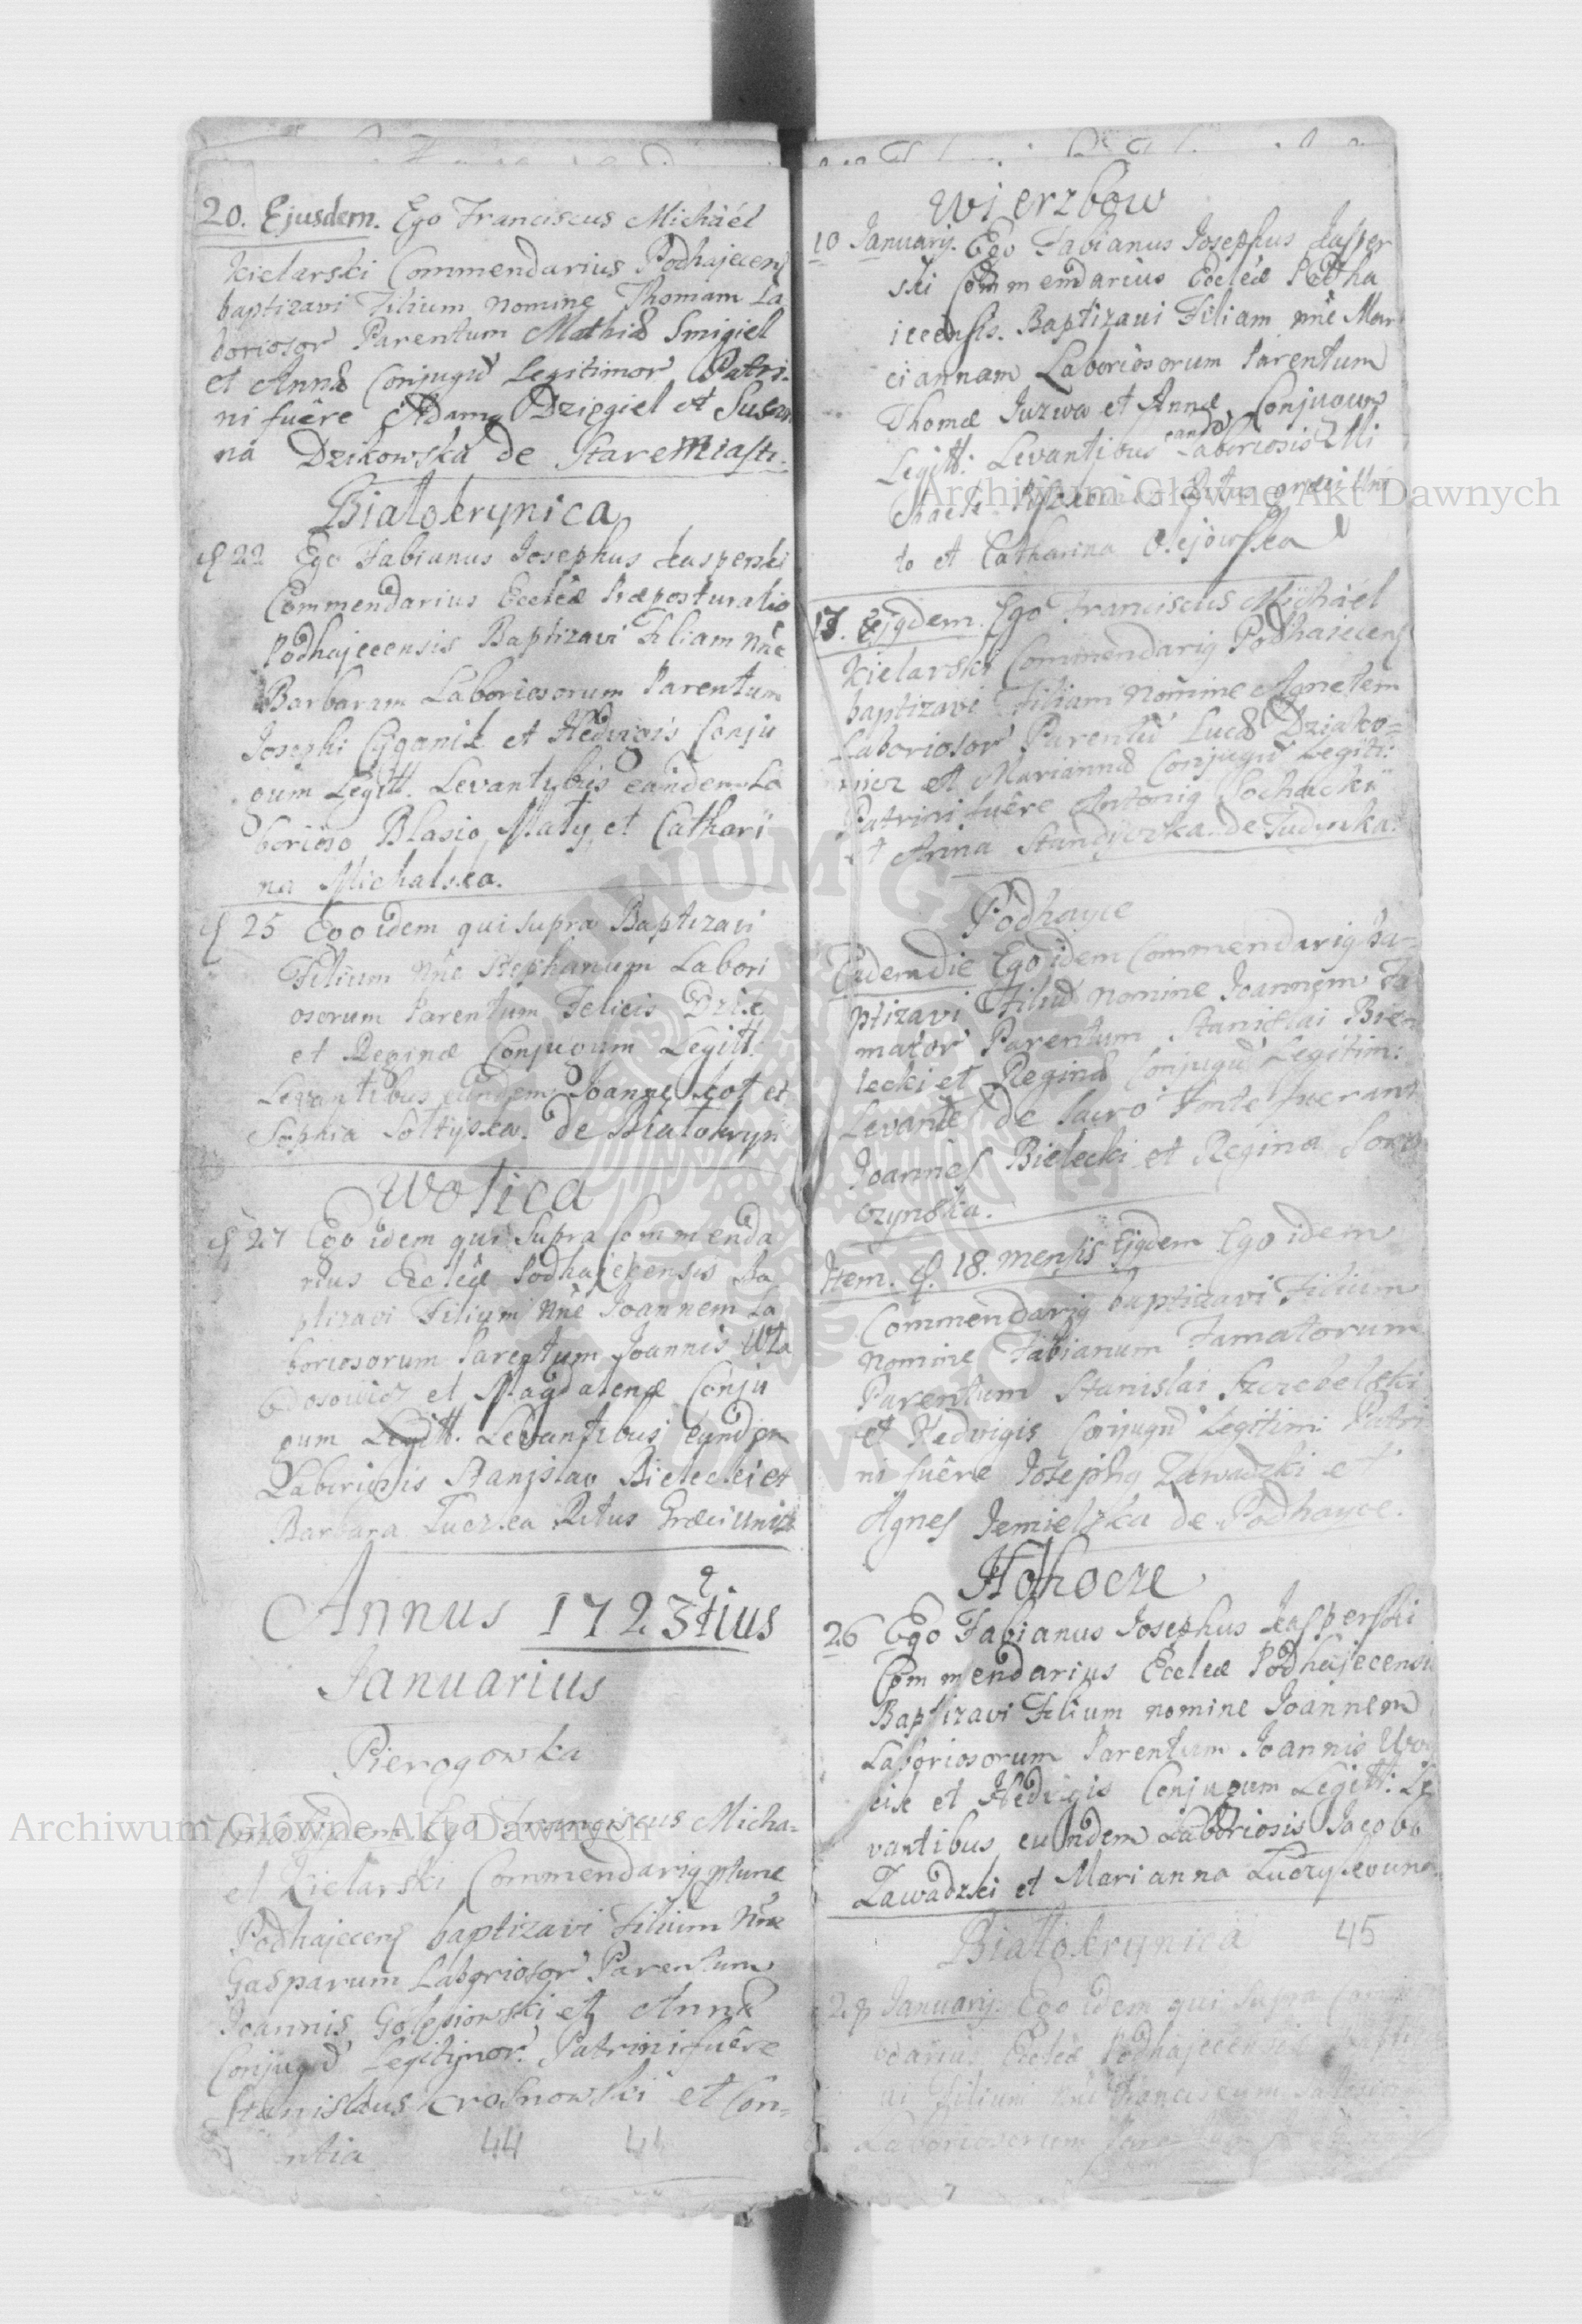 20. Ejusdem. Ego Franciscus Michàél
Kielarski Commendarius Podhajecens
baptizavi Filium nomine Thomam La
boriosor Parentum Mathiæ Smigiel
et Annæ Conjugũ Legitimor Patri-
ni fuêre Adamg Dzięgiel et Susan
na Dzikowska de StareMiasti.
Białokrynica
22 Ego Fabianus Josephus Kasperski
Commendarius Eccleæ Præposturalis
Podhajecensis Baptizavi Filiam Nne
Barbaram Laboriosorum Parentum
Josephi Cyganik et Hedvigis Conju
gum Legitt. Levantibus eandem La
borioso Blasio Mały et Cathari
na Michalska.
25 Ego idem qui supra Baptizavi
Filium Nne Stephanum Labori
osorum Parentum Felicis Dzik
et Reginæ Conjugum Legitt.
Levantibus eundem Joanne Kot et
Sophia Sołtyska. de Białokryn
Wolica
27 Ego idem qui supra Commenda
rius Eccleæ Podhajecensis Ba
ptizavi Filium Nne Joannem La
boriosorum Parentum Joannis Wła
dosowicz et Magdalenæ Conju
gum Legitt. Levantibus eundem
Laboriosis Stanislao Bielecki et
Barbara Tuczka Ritus Græci Unitæ
Annus 1723tius
Januarius
Pierogowka
Ego Franciscus Micha-
el Kielarski Commendarig ptunc
Podhajecens baptizavi Filium Nne
Gasparum Laboriosor Parentum
Joannis et Annæ
Conjugũ Legitimor. Patrini fuêre
Stanislaus Krasnowski et Con-
ntia
44 44
Wierzbow
10 Januarij. Ego Fabianus Josephus Kasper
ski Commendarius Eccleæ Podha
iecensis. Baptizavi Filiam nne Mar
ciannam Laboriosorum Parentum
Thomæ Juzwa et Annæ Conjugum
Legitt: Levantibus eand Laboriosis Mi
chaele Ritus græci Uni
to et Catharina Olejowska
17. Ejgdem. Ego Franciscus Michàél
Kielarski Commendarig Podhaiecens
baptizavi Filiam Nomine Agnetem
Laboriosor Parentũ Lucæ Dziako-
wicz et Mariannæ Conjugũ Legiti:
Patrini fuêre Antonig Sochacki
et Anna Standyczka de Judynka.
Podhayce
Eademdie Ego idem Commendarig ba-
ptizavi Filiũ Nomine Joannem Fa
mator Parentum Stanislai Bie
lecki et Reginæ Conjugũ Legitim:
Levantes de sacro Fonte fuerant
Joannes Bielecki et Regina Soro
czynska.
Item. 18. mensis Ejgdem Ego idem
Commendarig baptizavi Filium
nomine Fabianum Famatorum
Parentum Stanislai Szczebelski
et Hedvigis Conjugũ Legitim: Patri
ni fuêre Josephg Zawadzki et
Agnes Jemielska de Podhayce.
Hołhocze
26 Ego Fabianus Josephus Kasperski
Commendarius Eccleæ Podhajecensis
Baptizavi Filium nomine Joannem
Laboriosorum Parentum Joannis
et Hedvigis Conjugum Legitt: Le
vantibus eundem Laboriosis Jacobo
Zawadzki et Marianna Łuczykowna
Białłokrynica 45
28 Januarij. Ego idem qui supra Commen
darius Eccleæ Podhajecensis Baptiza
vi Filium Nne Franciscum
Laboriosorum
Archiwum Główne Akt Dawnych
Archiwum Główne Akt Dawnych